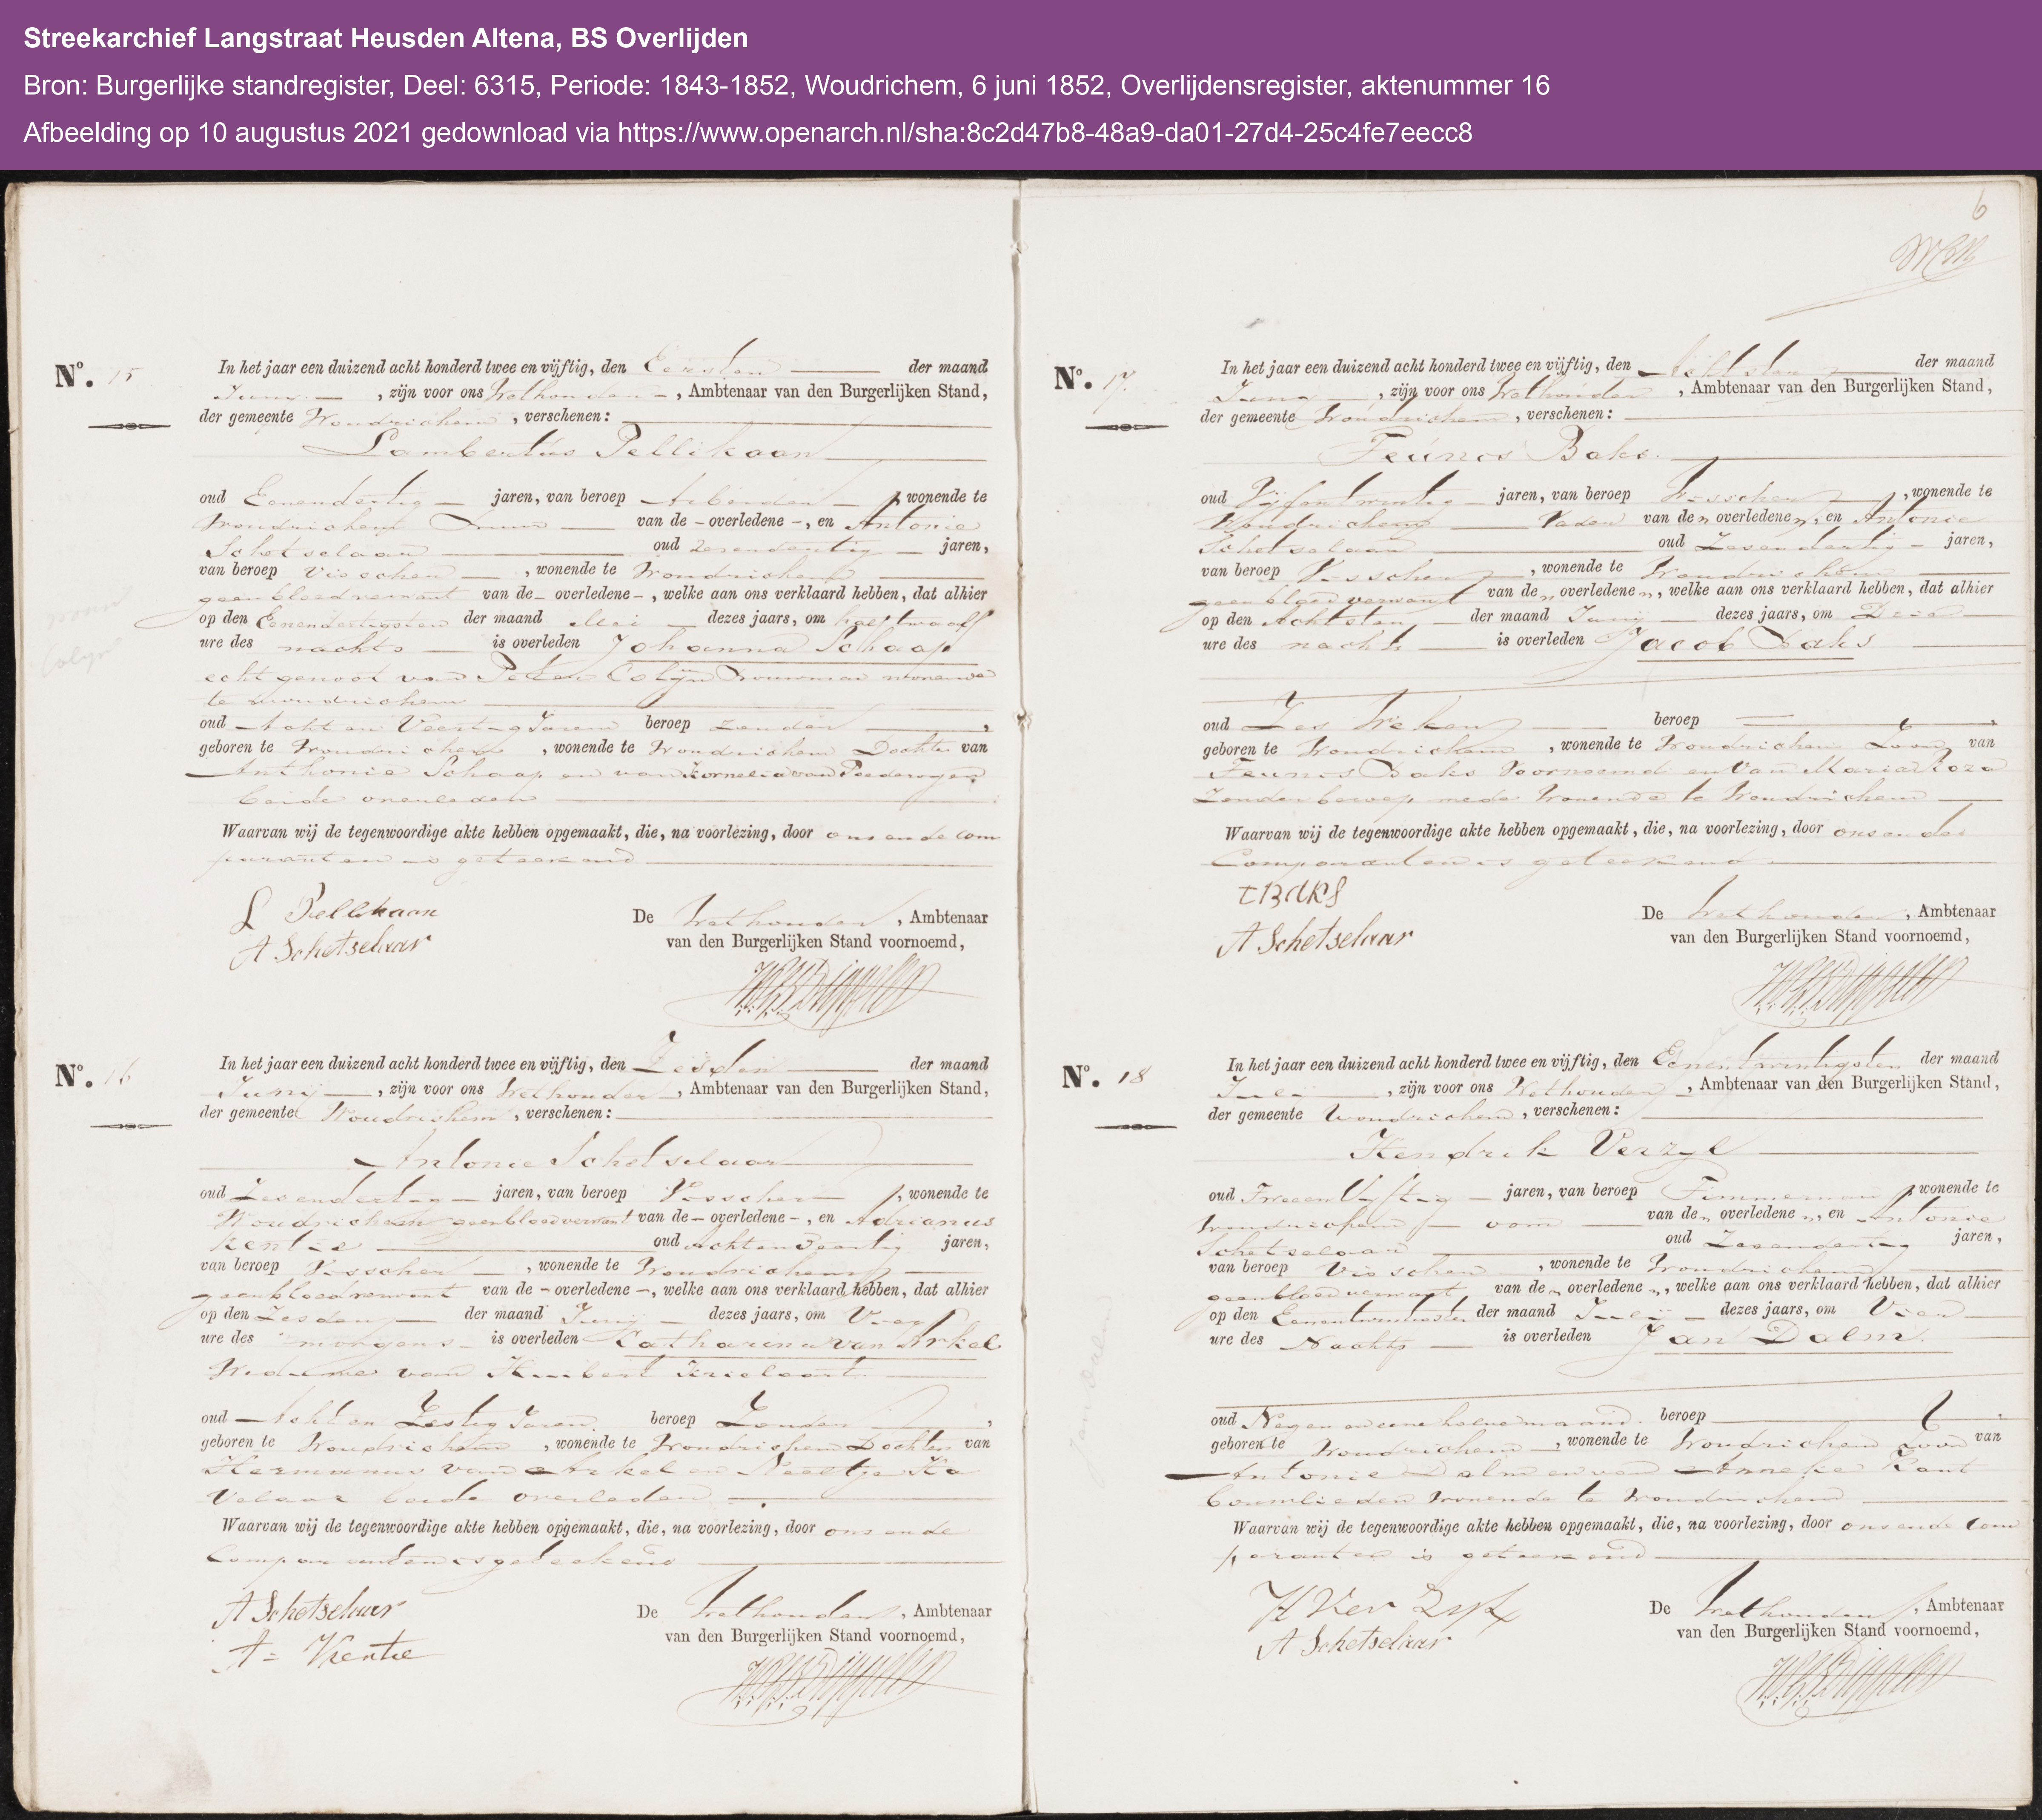 Streekarchief Langstraat Heusden Altena, BS Overlijden
Bron: Burgerlijke standregister, Deel: 6315, Periode: 1843-1852, Woudrichem, 6 juni 1852, Overlijdensregister, aktenummer 16
Afbeelding op 10 augustus 2021 gedownload via https://www.openarch.nl/sha:8c2d47b8-48a9-da01-27d4-25c4fe7eecc8
No. 15
In het jaar een duizend acht honderd twee en vijftig, den Eersten der maand
Junij, zijn voor ons Wethouder, Ambtenaar van den Burgerlijken Stand,
der gemeente Woudrichem, verschenen:
Lambertus Pellikaan
oud Eenendertig jaren, van beroep Arbeider, wonende te
Woudrichem van de overledene, en Antonie
Schetselaar oud zesendertig jaren,
van beroep Visscher, wonende te Woudrichem
geen bloedverwant van de overledene, welke aan ons verklaard hebben, dat alhier
op den Eenendertigsten der maand Mei dezes jaars, om half twaalf
ure des nachts is overleden Johanna Schaap
echtgenoot van Peter Colijn Bouwman wonende
te Woudrichem
oud Acht en Veertig Jaren beroep zonder,
geboren te Woudrichem, wonende te Woudrichem Dochter van
Anthonie Schaap en van Kornelia van
beide overleden
Waarvan wij de tegenwoordige akte hebben opgemaakt, die, na voorlezing, door ons en de com
paranten is geteekend
L Pellikaan
A Schetselaar
De Wethouder, Ambtenaar
van den Burgerlijken Stand voornoemd,
No. 16
In het jaar een duizend acht honderd twee en vijftig, den Zesden der maand
Junij, zijn voor ons Wethouder, Ambtenaar van den Burgerlijken Stand,
der gemeente Woudrichem, verschenen:
Antonie Schetselaar
oud Zesendertig jaren, van beroep Visscher, wonende te
Woudrichem geen bloedverwant van de overledene, en Adrianus
Kentie oud Achten Veertig jaren,
van beroep Visscher, wonende te Woudrichem
geen bloedverwant van de overledene, welke aan ons verklaard hebben, dat alhier
op den Zesden der maand Junij dezes jaars, om Vier
ure des morgens is overleden Catharina van Arkel
Weduwe van Huibert
oud Acht en Zestig Jaren beroep Zonder,
geboren te Woudrichem, wonende te Woudrichem Dochter van
Hermanus van Arkel en Neeltje Ka
velaar beide overleden
Waarvan wij de tegenwoordige akte hebben opgemaakt, die, na voorlezing, door ons en de
Comparanten is geteekend
A Schetselaar
A= Kentie
De Wethouder, Ambtenaar
van den Burgerlijken Stand voornoemd,
6
No. 17
In het jaar een duizend acht honderd twee en vijftig, den Achtsten der maand
Junij, zijn voor ons Wethouder, Ambtenaar van den Burgerlijken Stand,
der gemeente Woudrichem, verschenen:
Teunis Baks
oud Vijfentwintig jaren, van beroep Visscher, wonende te
Woudrichem Vader van de overledene, en Antonie
Schetselaar oud Zesendertig jaren,
van beroep Visscher, wonende te Woudrichem
geen bloedverwant van de overledene, welke aan ons verklaard hebben, dat alhier
op den Achtsten der maand Junij dezes jaars, om Drie
ure des nachts is overleden Jacob Baks
oud Zes Weken beroep
geboren te Woudrichem, wonende te Woudrichem Zoon van
Teunis Baks Voornoemd en van Maria Roza
Zonder beroep mede Wonende te Woudrichem
Waarvan wij de tegenwoordige akte hebben opgemaakt, die, na voorlezing, door ons en de
Comparanten is geteekend
T BAKS
A Schetselaar
De Wethouder, Ambtenaar
van den Burgerlijken Stand voornoemd,
No. 18
In het jaar een duizend acht honderd twee en vijftig, den Eenentwintigsten der maand
Julij, zijn voor ons Wethouder, Ambtenaar van den Burgerlijken Stand,
der gemeente Woudrichem, verschenen:
Hendrik Verzyl
oud Tweeen Vyftig jaren, van beroep Timmerman, wonende te
Woudrichem oom van de overledene, en Antonie
Schetselaar oud Zesendertig jaren,
van beroep Visscher, wonende te Woudrichem
geen bloedverwant, van de overledene, welke aan ons verklaard hebben, dat alhier
op den Eenentwintigsten der maand Julij dezes jaars, om Vier
ure des Nachts is overleden Jan Dalm
oud Negen en eene halve maand beroep
geboren te Woudrichem, wonende te Woudrichem Zoon van
Antonie Dalm en van Annetie Kant
Bouwlieden Wonende te Woudrichem
Waarvan wij de tegenwoordige akte hebben opgemaakt, die, na voorlezing, door ons en de Com
paranten is geteekend
H Ver Zyl
A Schetselaar
De Wethouder, Ambtenaar
van den Burgerlijken Stand voornoemd,